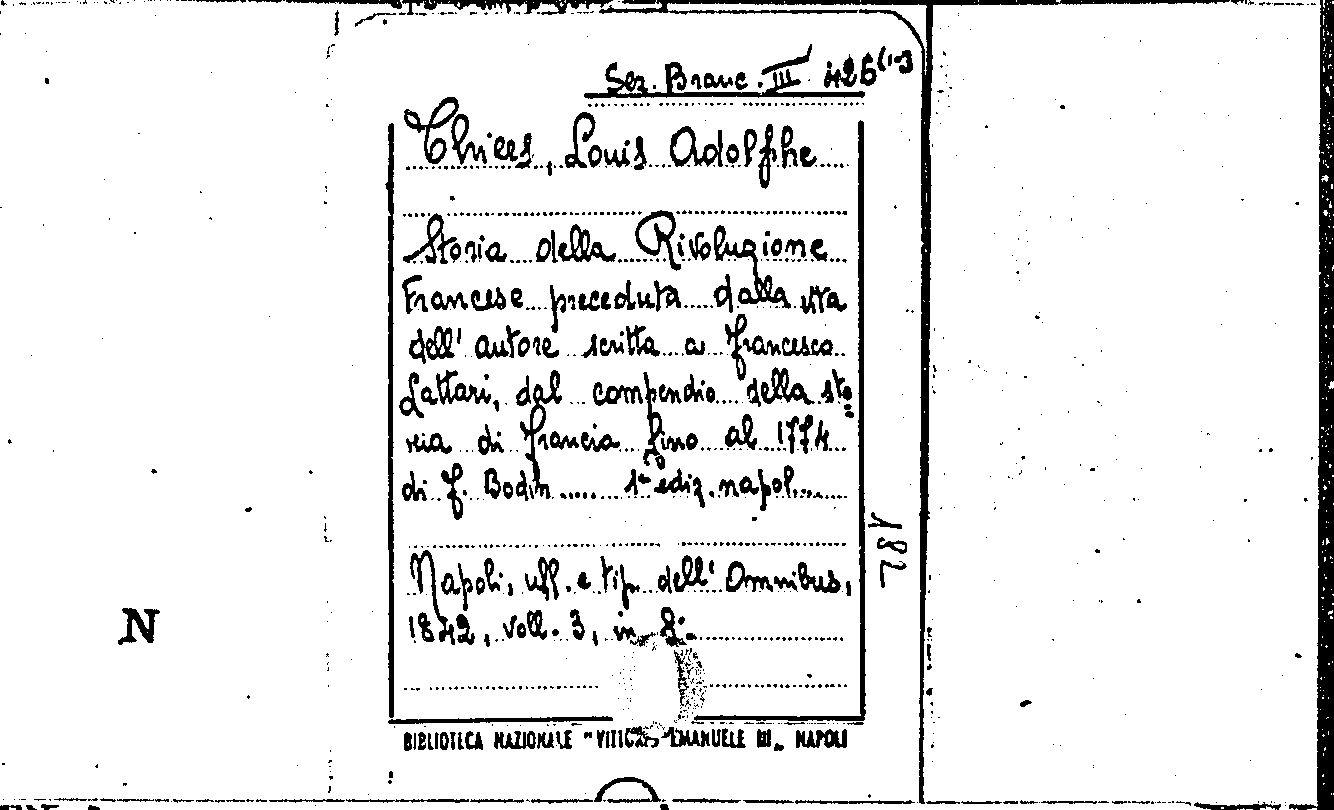 Sez. Branc. III 426(1-3
Thiers, Louis Adolphe
Storia della Rivoluzione
Francese preceduta dalla vita
dell' autore scritta a Francesco
Lattari, dal compendio della sto=
ria di Francia fino al 1774
di F. Bodin ..... 1ª ediz. napol....
Napoli, uff. e tip. dell' Omnibus,
1842, voll. 3, in 8.
182
N
BIBLIOTECA NAZIONALE "EMANUELE III„ NAPOLI